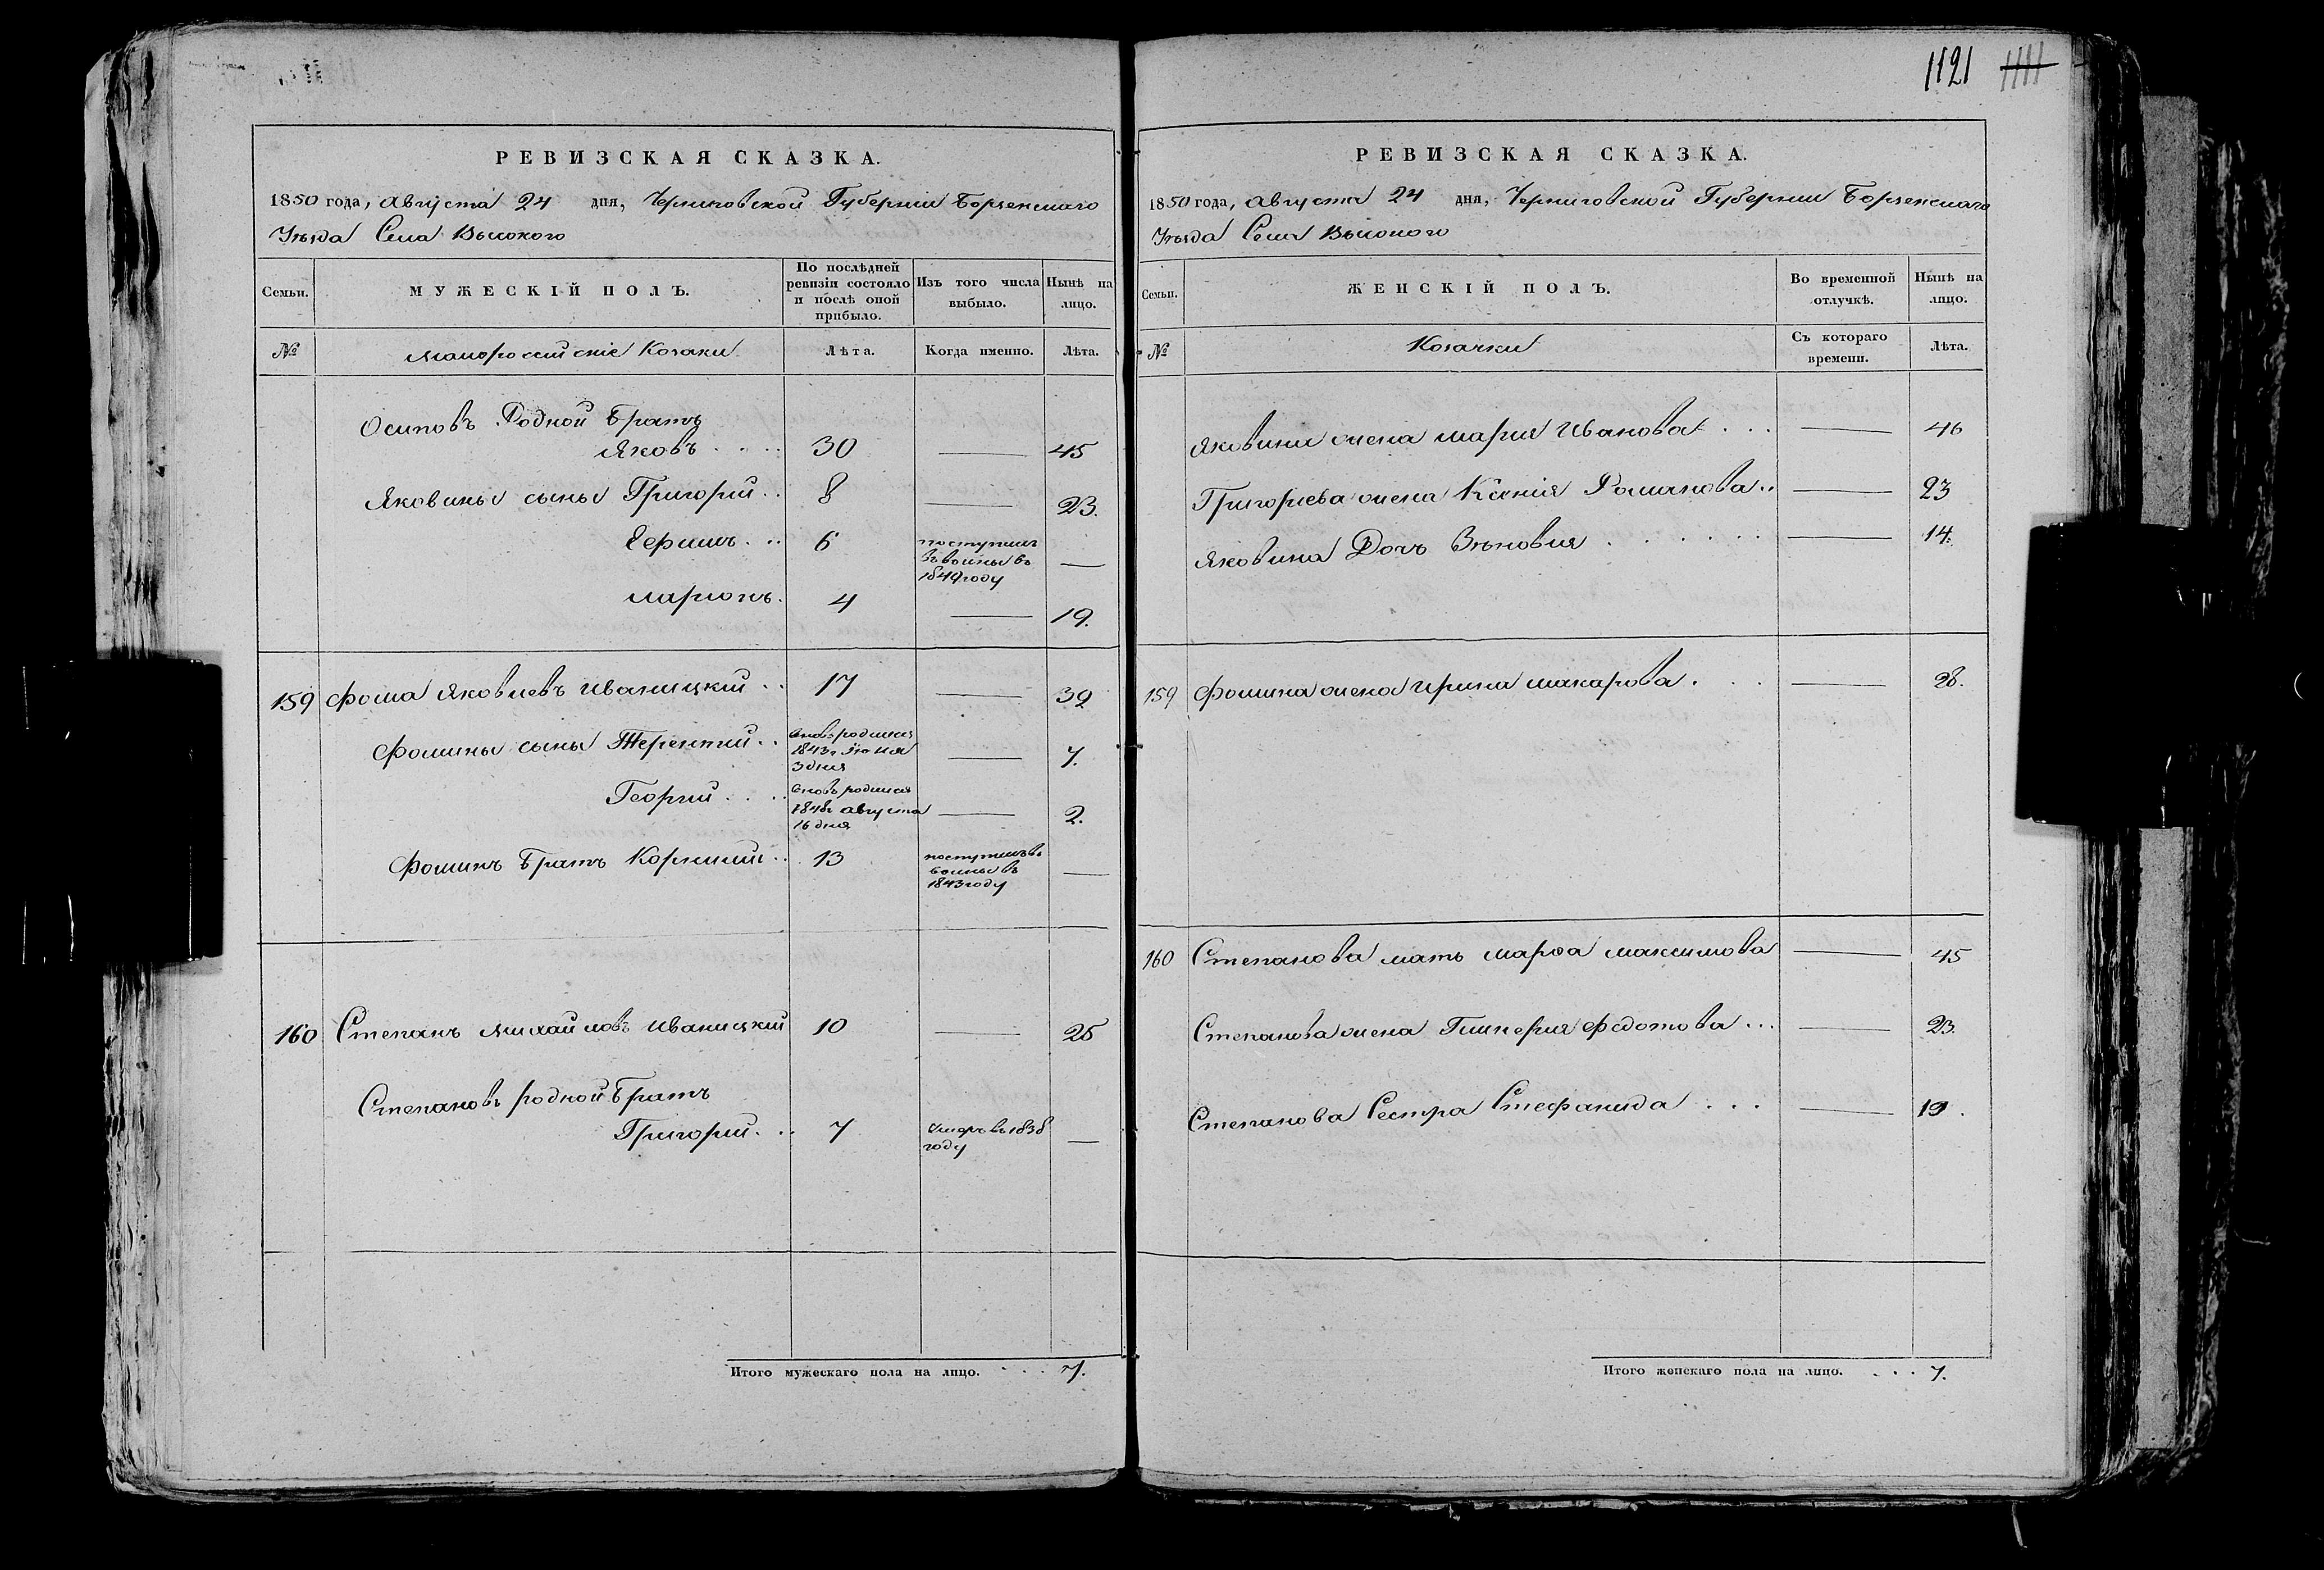 1121 1111
РЕВИЗСКАЯ СКАЗКА.
1850 года, августа 24 дня, Черниговской Губернии Борзенского
Уезда Села Высокого
Семьи.
МУЖЕСКІЙ ПОЛЪ.
По послѣдней ревизіи состояло и послѣ оной прибыло.
Изъ того числа выбыло.
Нынѣ на лицо.
№ Малороссийские Козаки Лѣта. Когда именно. Лѣта.
Осиповъ Родной Братъ
Яковъ 30 — 45
Яковины сыны Григорий 8 — 23.
6 поступилъ въ воины въ 1849 году —
4 — 19.
159 Фома Яковлевъ Иваницкий 17 — 32
Фомины сыны Терентий вновь родился 1843г. Июня 3 дня — 7.
Георгий вновь родился 1848г августа 16 дня — 2.
Фоминъ Братъ Корнилий 13 поступилъ въ воины въ 1843 году —
160 Степанъ Михайловъ Иваницкий 10 — 25
Степановъ родной Братъ
Григорий 7 умеръ въ 1838 году —
Итого мужескаго пола на лицо. 7.
РЕВИЗСКАЯ СКАЗКА.
1850 года, августа 24 дня, Черниговской Губернии Борзенского
Уезда Села Высокого
Семьи.
ЖЕНСКІЙ ПОЛЪ.
Во временной отлучкѣ.
Нынѣ на лицо.
№ Козачки Съ котораго времени. Лѣта.
Яковина жена Мария Иванова — 46
Григорьева жена Ксения Романова — 23
Яковина Дочь Зѣновия — 14.
159 Фомина жена Ирина Макарова — 28.
160 Степанова мать Марфа Максимова — 45
Степанова жена Гликерия Федотова — 23.
Степанова Сестра Стефанида — 19.
Итого женскаго пола на лицо. 7.